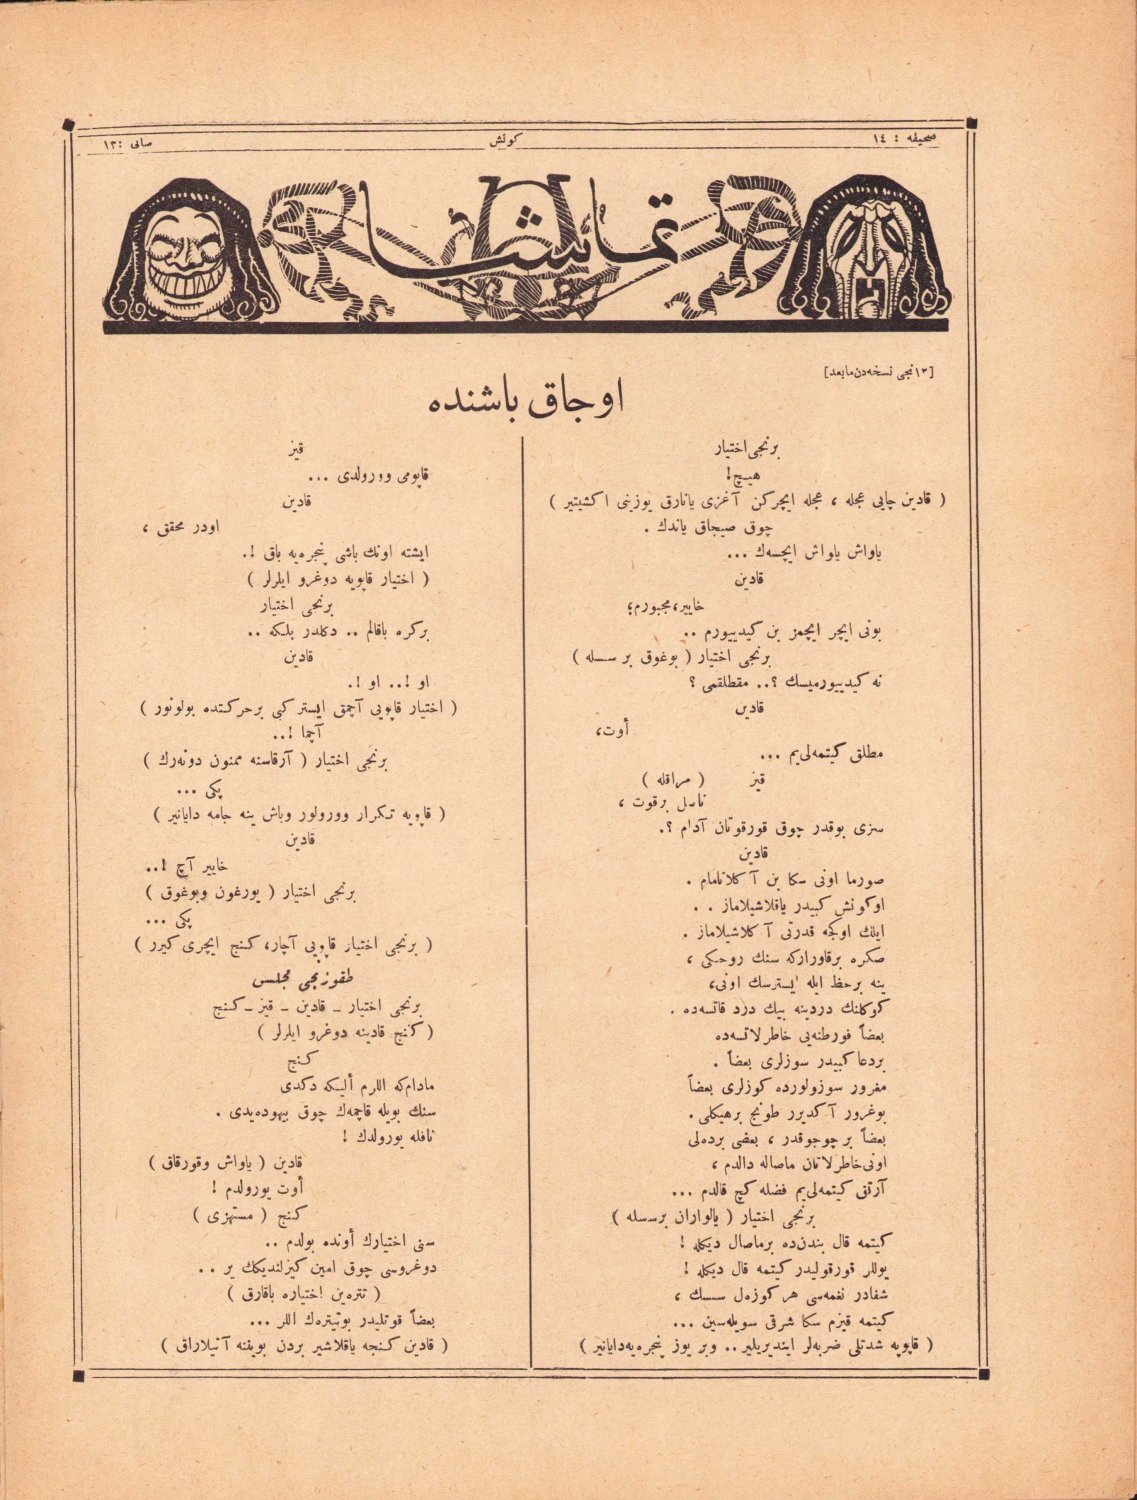 صحیفه : ١٤
كونش
صایی : ١٣
تماشا
[١٢نجی نسخه‌دن مابعد]
اوجاق باشنده
برنجی اختیار
هیچ!
( قادین چایی عجله ، عجله ایچركن آغزی یانارق یوزینی اكشیتیر )
چوق صیجاق یاندك .
یاواش یاواش ایچسه‌ك ...
قادین
خایبر، مجبورم؛
بونی ایچر ایچمز بن كیدییورم ..
برنجی اختیار ( بوغوق بر سسله )
نه كیدییورمیسك ؟.. مقطلقمی ؟
قادین
أوت،
مطلق كیتمه‌لی‌یم ...
قیز ( مراقله )
ناصل برقوت ،
سزی بوقدر چوق قورقوتان آدام ؟.
قادین
صورما اونی سكا بن آكلاتامام .
اوكونش كبیدر یاقلاشیلاماز . .
ایلك اوكجه قدرتی آكلاشیلاماز .
صكره برقاورارکه سنك روحكی ،
ینه برحظ ایله ایسترسك اونی،
كوكلنك دردینه بیك درد قاتسه‌ده .
بعضاً فورطنه‌یی خاطرلاتسه‌ده
بردعا كبیدر سوزلری بعضاً .
مغرور سوزولورده كوزلری بعضاً
بوغرور آكدیرر طونج برهیكلی .
بعضاً بر چوجوقدر ، بعضی برده‌لی
اونی خاطرلاتان ماصاله دالدم ،
آرتق كیتمه‌لی‌یم فضله كچ قالدم ...
برنجی اختیار ( یالواران برسسله )
كیتمه قال بندن‌ده برماصال دیكله !
یوللر قورقولیدر كیتمه قال دیكله !
شفادر نغمه‌سی هر كوزه‌ل سسك ،
كیتمه قیزم سكا شرقی سویله‌سین ...
( قاپویه شدتلی ضربه‌لر ایندیریلیر .. وبر یوز پنجره‌یه‌دایانیر )
قیز
قاپومی وورولدی ...
قادین
اودر محقق ،
ایشته اونك باشی پنجره‌یه باق !.
( اختیار قاپویه دوغرو ایلرلر )
برنجی اختیار
بركره باقالم .. دكلدر بلكه ..
قادین
او !.. او !.
( اختیار قاپویی آچمق ایستر كبی برحركتده بولونور )
آچما !..
برنجی اختیار ( آرقاسنه ممنون دونه‌رك )
پكی ...
( قاپویه تكرار وورولور وباش ینه جامه دایانیر )
قادین
خایبر آچ !..
برنجی اختیار ( یورغون وبوغوق )
پكی ...
( برنجی اختیار قاپویی آچار، كنج ایچری كیرر )
طقوزنجی مجلس
برنجی اختیار ــ قادین ــ قیز ــ كنج
( كنج قادینه دوغرو ایلرلر )
كنج
مادام‌كه اللرم ألیكه دكدی
سنك بویله قاچمه‌ك چوق بیهوده‌یدی .
نافله یورولدك !
قادین ( یاواش وقورقاق )
أوت یورولدم !
كنج ( مستهزی )
سنی اختیارك أونده بولدم ..
دوغروسی چوق امین كیزلندیكك یر . .
( تتره‌ین اختیاره باقارق )
بعضاً قوتلیدر بوتیتره‌ك اللر ...
( قادین كنجه یاقلاشیر بردن بوینه آتیلاراق )